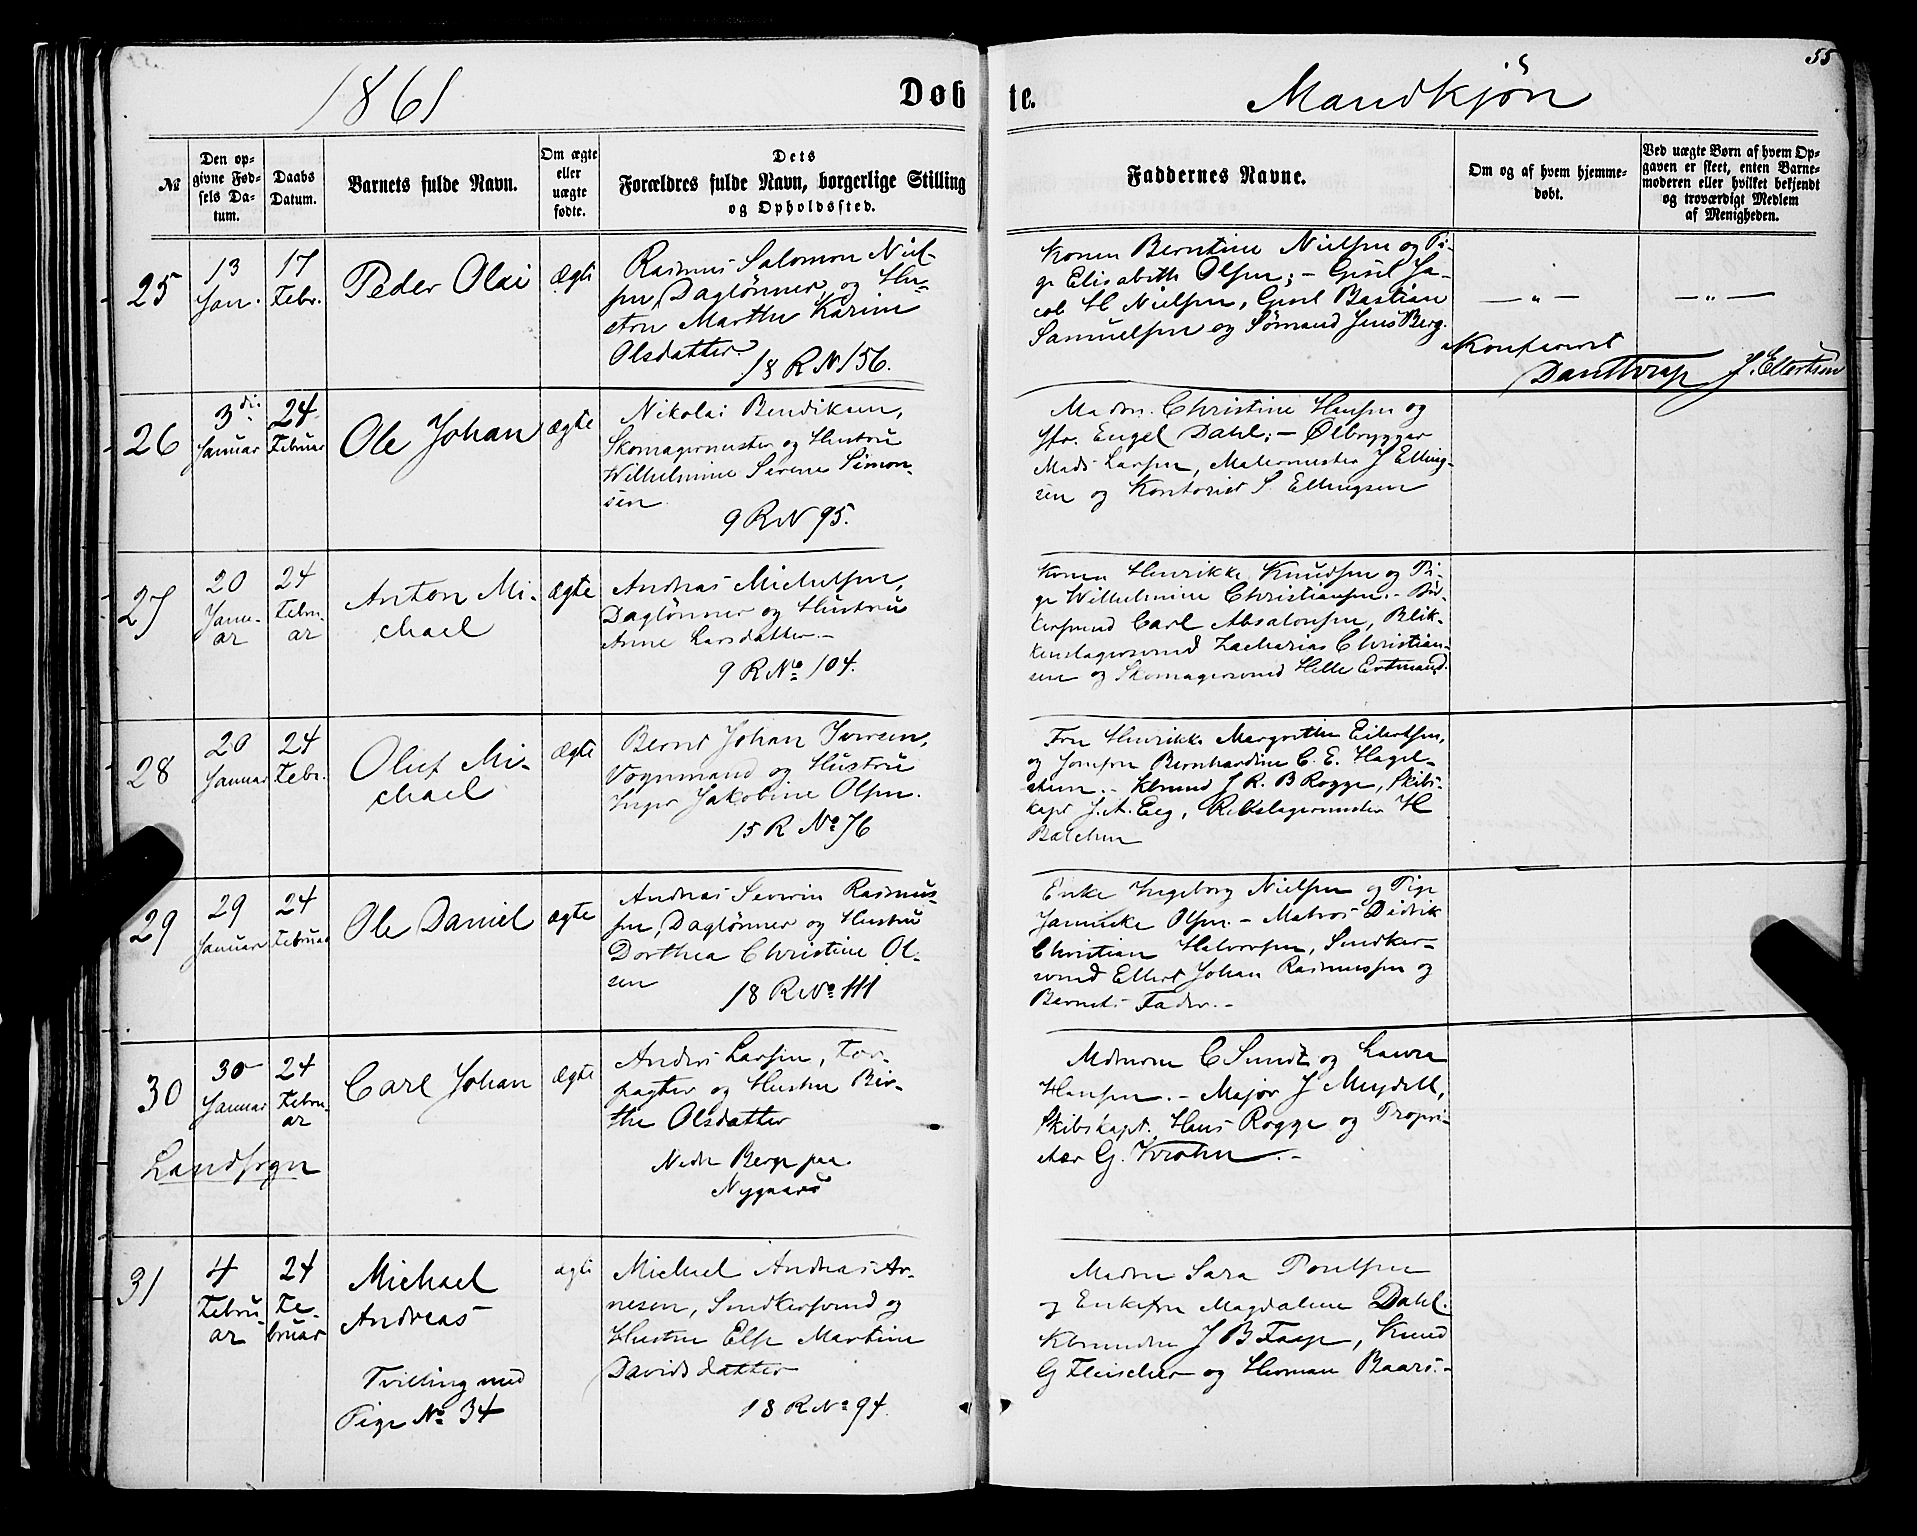 55
1861
Døbte.
Mandkjøn
№
Den op-
givne Fød-
sels Da-
tum.
Daabs
Datum.
Barnets fulde Navn.
Om ægte
eller
uægte
fødte.
Dets
Forældres fulde Navn, borgerlige Stilling
og Opholdssted.
Faddernes Navne.
Om og af hvem hjemme-
døbt.
Ved uægte Børn af hvem Op-
gaven er skeet, enten Barne-
moderen eller hvilket bekjendt
og troværdigt Medlem
af Menigheden.
25
13
Jan.
17
Febr.
Peder Olai
Ægte
Rasmus Salomon Niel-
sen, Daglønner og Hu-
stru Marthe Karine
Olsdatter.
18 R N 156.
Konen Berntine Nielsen og Pi-
ge Elisabeth Olsen; - Gesel Ja-
cob H Nielsen, Gesel Bastian
Samuelsen og Sømand Jens Berg.
— „ —
— „ —
Konfereret
Danthrap J. Ellertsen
26
3die
Januar
24
Februar
Ole Johan
ægte
Nikolai Bendiksen,
Skomagermester og Hustru
Wilhelmine Serene Simon-
sen
9 R N 95.
Mad. Christine Hansen og
Jfr. Engel Dahl; - Ølbrygger
Mads Larsen, Malermester J Elling-
sen og Kontorist S. Ellingsen
27
20
Janu-
ar
24
Febru-
ar
Anton Mi-
chael
ægte
Andreas Michelsen,
Daglønner og Hustru
Anne Larsdatter. -
9 R No 104.
Konen Henrikke Knudsen og Pi-
ge Wilhelmine Christiansen. - Bød-
kersvend Carl Absalonsen, Blik-
kenslagersvend Zacharias Christian-
sen og Skomagersvend Helle Ertmand.
28
20
Januar
24
Febr.
Oluf Mi-
chael
Ægte
Bernt Johan Iversen,
Vognmand og Hustru
Inger Jakobine Olsen.
15 R No 76
Fru Henrikke Margrethe Eilertsen,
og Jomfru Bernhardine C. E. Hagel-
steen. - Kbmnd J. R. B Rogge, Skibs-
kapt J. A. Eeg, Rebslagermester H
Balchen
29
29
Januar
24
Februar
Ole Daniel
ægte
Andreas Severin Rasmus-
sen, Daglønner og Hustru
Dorthea Christine Ol-
sen
18 R No 111
Enke Ingeborg Nielsen og Pige
Jannicke Olsen. - Matros Didrik
Christian Halvorsen, Snedker-
svend Ellert Johan Rasmussen og
Barnets Fader. -
30
30
Januar
24
Febru-
ar
Carl Johan
Ægte
Anders Larsen, For-
pagter og Hustru Bir-
the Olsdatter
Nedre Berge paa
Nygaard
Landsogn
Mdmrne C Sundt og Laura
Hansen. - Major J Meydell,
Skibskapt. Hans Rogge og Propri-
etær G. Krohn. -
31
4
Febru-
ar
24
Fe-
bruar
Michael
Andreas
Tvilling med
Pige No 34
ægte
Michael Andreas Ar-
nesen, Snedkersvend og
Hustru Else Martine
Davidsdatter
18 R No 94.
Madme Sara Poulsen
og Enkefru Magdalene Dahl.
Kbmndne J B Faye, Knud
G Fleischer og Herman Baars. -